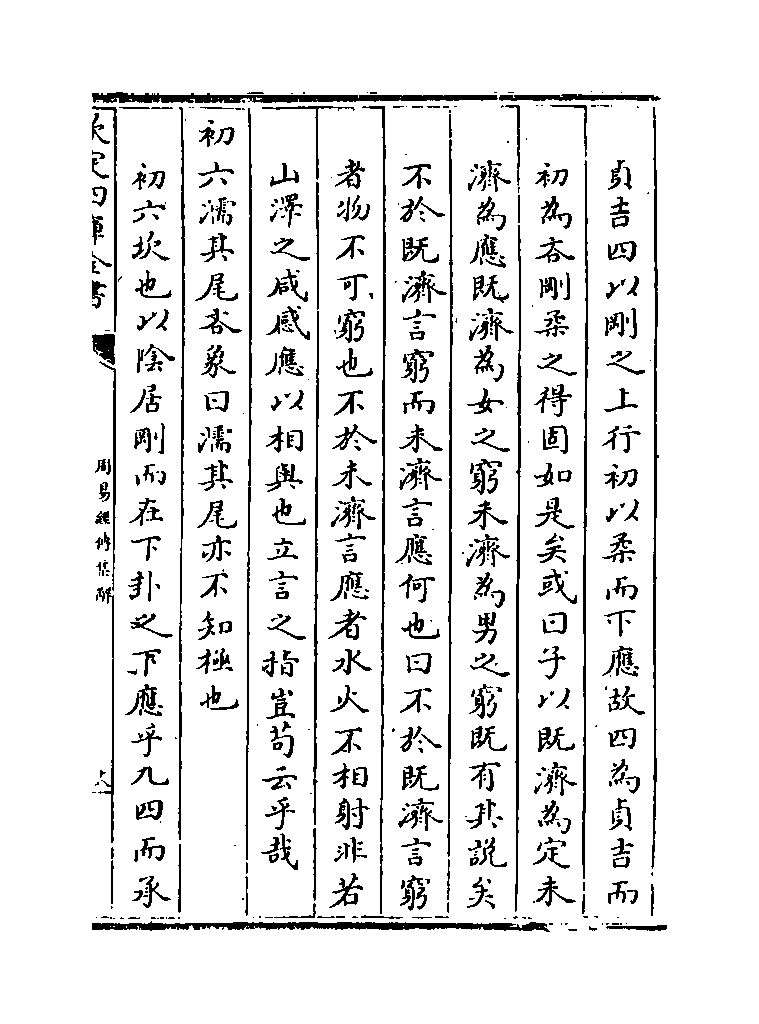 貞吉四以剛之上行初以柔而下應故四為貞吉而
初為吝剛柔之得固如是矣或曰子以既濟為定未
濟為應既濟為女之窮未濟為男之窮既有其説矣
不於既濟言窮而未濟言應何也曰不於既濟言窮
者物不可窮也不於未濟言應者水火不相射非若
山澤之咸感應以相與也立言之指豈苟云乎哉
初六濡其尾吝象曰濡其尾亦不知極也
初六坎也以陰居剛而在下卦之下應乎九四而承
欽定四庫全書
周易經傳集解